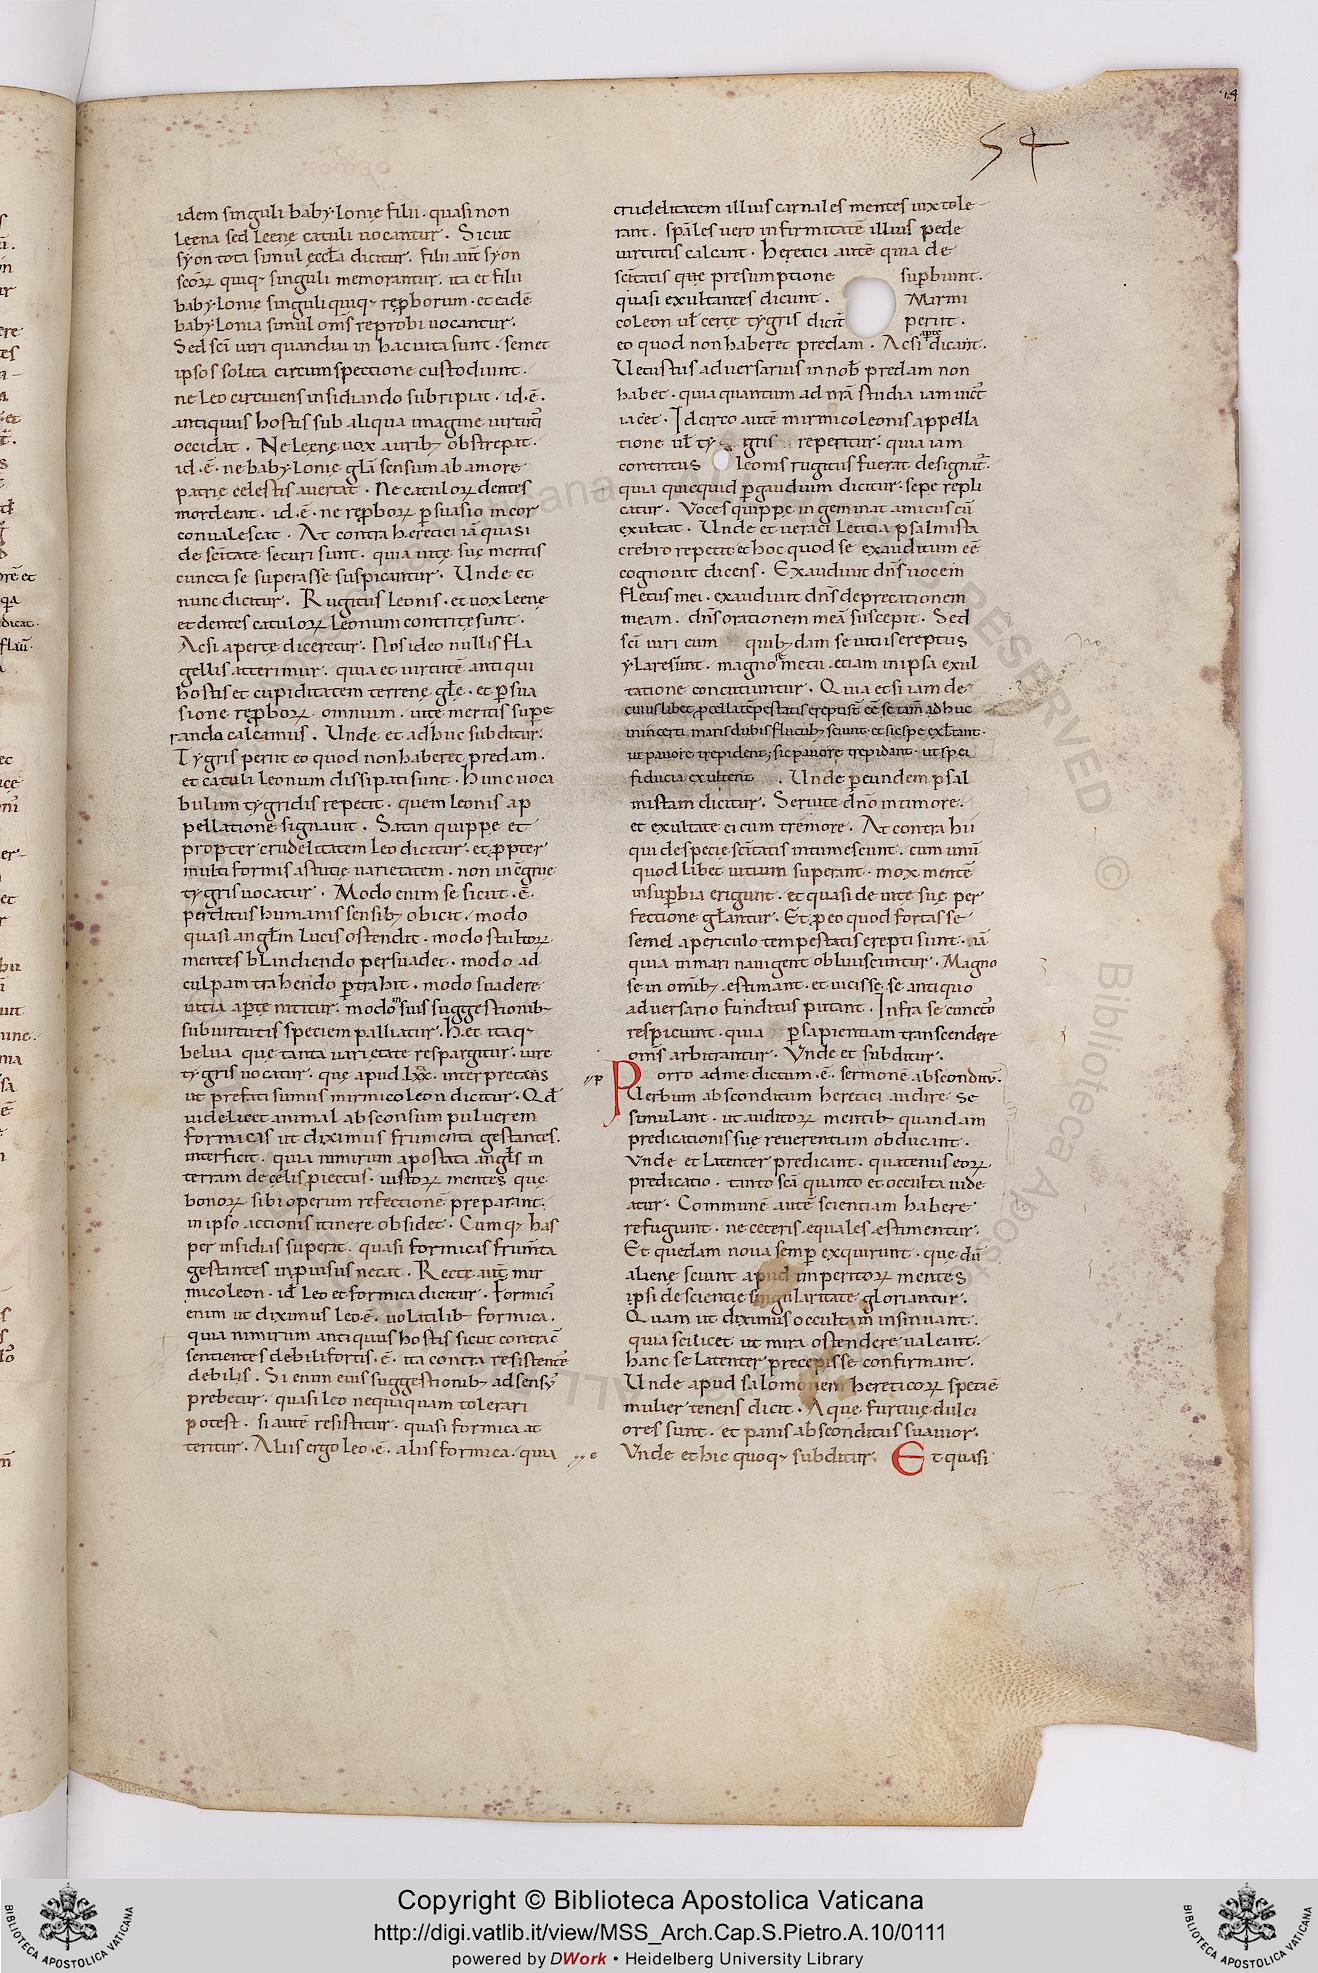 54
idem singuli baby·lonię filii · quasi non
leena sed leenę catuli uocantur · Sicut
syon tota simul ęccła dicitur · filii aut̄ syon
scōꝝ quiq· singuli memorantur · ita et filii
baby·lonię singuli quiq· reꝓborum · et eadē
baby·lonia simul om̄s reprobi uocantur·
Sed scī uiri quandiu in hac uita sunt · semet
ipsos solita circumspectione custodiunt ·
ne leo circuiens insidiando subripiat · id · ē ·
antiquus hostis sub aliqua imagine uirtutꝭ
occidat · Ne leenę uox aurib; obstrepat ·
id · ē · ne baby·lonię gła sensum ab amore
patrię celestis auertat · Ne catuloꝝ dentes
mordeant · id · ē · ne reꝓboꝝ ꝑsuasio in cor
conualescat · At contra heretici iā quasi
de scītate securi sunt · quia uitę suę meritis
cuncta se superasse suspicantur · Unde et
nunc dicitur · Rugitus leonis · et uox leenę
et dentes catuloꝝ leonum contriti sunt ·
Acsi apertę diceretur · Nos ideo nullis fla
gellis atterimur · quia et uirtutē antiqui
hostis et cupiditatem terrenę głę · et ꝑsua
sione reꝓboꝝ omnium · uitę meritis supe
rando calcamus · Unde et adhuc subditur·
Tygris perit eo quod non haberet predam ·
et catuli leonum dissipati sunt · hunc uoca
bulum tygridis repetit · quem leonis ap
pellatione signauit · Satan quippe et
propter crudelitatem leo dicitur · et ꝓpter
multiformis astutię uarietatem · non incgruę
tygris uocatur · Modo enim se sicut · ē ·
perditus humanis sensib; obicit · modo
quasi angłm lucis ostendit · modo stultoꝝ
mentes blandiendo persuadet · modo ad
culpam trahendo ꝑtrahit · modo suadere
uitia aꝑte nititur · modo in suis suggestionib;
sub uirtutis speciem palliatur · Hęc itaq·
belua quę tanta uarietate respargitur · iure
tygris uocatur · quę apud · lxx · interpretans
ut prefati sumus mirmicoleon dicitur · Qd̄
uidelicet animal absconsum puluerem
formicas ut diximus frumenta gestantes ·
interficit · quia nimirum apostata angłs in
terram de cęlis ꝓiectus · iustoꝝ mentes quę
bonoꝝ sibi operum refectionē preparant ·
in ipso actionis itinere obsidet · Cumq· has
per insidias superat · quasi formicas frum̄ta
gestantes inꝓuisus necat · Rectę aut̄ mir
micoleon · id̄ leo et formica dicitur · Formicꝭ
enim ut diximus leo · ē · uolatilib; formica ·
quia nimirum antiquus hostis sicut contra c̄
sentientes debili fortis · ē · ita contra resistente
debilis · Si enim eius suggestionib; adsensꝰ
prebetur · quasi leo nequaquam tolerari
potest · si autē resistitur · quasi formica at
teritur · Aliis ergo leo · ē · aliis formica · quia
crudelitatem illius carnales mentes uix tole
rant · spāles uero infirmitatē illius pede
uirtutis calcant · Heretici autē quia de
scītatis quę presumptione supbiunt ·
quasi exultantes dicunt · Mirmi
coleon uł certę tygris dicit̄ periit ·
eo quod non haberet predam · Acsi aꝑtę dicant ·
Uetustus aduersarius in nob̄ predam non
habet · quia quantum ad nr̄a studia iam uict̄
iacet · Idcirco autē mirmicoleonis appella
tione uł ty gris reperitur · quia iam
contritus leonis rugitus fuerat designat̄ ·
quia quicquid ꝑ gaudium dicitur · sepe repli
catur · Voces quippe ingeminat amicus cū
exultat · Unde et ueraci leticia psalmista
crebro repetit et hoc quod se exauditum eē
cognouit dicens · Exaudiuit dn̄s uocem
fletus mei · exaudiuit dn̄s deprecationem
meam · dn̄s orationem meā suscepit · Sed
scī uiri cum quib;dam se uitiis ereptus
ylaresunt · magno se metu · etiam in ipsa exul
tatione concutiuntur · Quia etsi iam de
cuius libet ꝓcella tēpestatis ereptisē eē se tam̄ adhuc
in incerti maris dubiis fluctib; sciunt · et sic spe exłtant ·
ut pauore trepident; sic pauore trepidant · ut spei
fiducia exultent · Unde ꝑ eundem psal
mistam dicitur · Seruite dn̄o in timore ·
et exultate ei cum tremore · At contra hii
qui de specię scītatis intumescunt · cum unū
quod libet uitium superant · mox mentē
in supbia erigunt · et quasi de uitę suę per
fectione głantur · Et ꝓ eo quod fortasse
semel a periculo tempestatis erepti sunt · iā
quia in mari nauigent obliuiscuntur · Magno
se in omīb; ęstimant · et uicisse se antiquo
aduersario funditus putant · Infra se cunctꝰ
respiciunt · quia ꝑ sapientiam transcendere
om̄s arbitrantur · Vnde et subditur ·
Porro ad me dictum · ē · sermonē absconditū ·
Uerbum absconditum heretici audire se
simulant · ut auditoꝝ mentib; quandam
predicationis suę reuerentiam obducant ·
Vnde et latenter predicant · quatenus eoꝝ
predicatio · tanto scā quanto et occulta uide
atur · Communē autē scientiam habere
refugiunt · ne ceteris ęquales ęstimentur ·
Et quedam noua semꝑ exquirunt · quę dū
alienę sciunt apud imperitoꝝ mentes
ipsi de scientię singularitate gloriantur ·
Quam ut diximus occultam insinuant ·
quia scilicet ut mira ostendere ualeant ·
hanc se latenter precepisse confirmant ·
Unde apud salomonem hereticoꝝ speciē
mulier tenens dicit · Aquę furtiuę dulci
ores sunt · et panis absconditus suauior ·
Vnde et hic quoq· subditur · Et quasi
Copyright © Biblioteca Apostolica Vaticana
http://digi.vatlib.it/view/MSS_Arch.Cap.S.Pietro.A.10/0111
powered by DWork • Heidelberg University Library
BIBLIOTECA APOSTOLICA VATICANA
BIBLIOTECA APOSTOLICA VATICANA